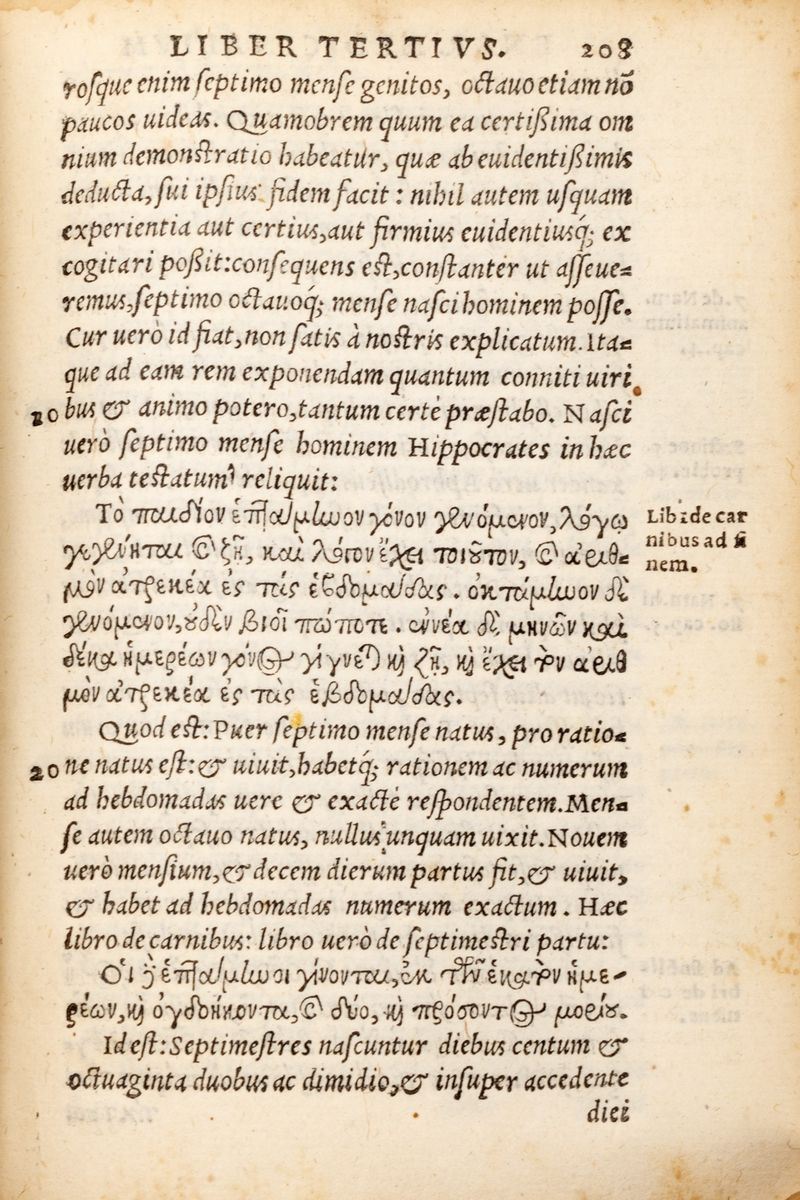 LIBER TERTIVS. 208
rosque enim septimo mense genitos, octauo etiam nō
paucos uideas. Quamobrem quum ea certißima om
nium demonstratio habeatur, quæ ab euidentißimis
deducta, sui ipsius fidem facit: nihil autem usquam
experientia aut certius, aut firmius euidentiusq; ex
cogitari poßit: consequens est, constanter ut asseue=
remus, septimo octauoq; mense nasci hominem posse.
Cur uerò id fiat, non satis à nostris explicatum. Ita=
que ad eam rem exponendam quantum conniti uiri
10 bus & animo potero, tantum certè præstabo. Nasci
uerò septimo mense hominem Hippocrates in hæc
uerba testatum reliquit:
Τὸ παιδίον ἑπταμίωον γόνον γενόμενον, λόγῳ
γεγένηται καὶ ζῇ, καὶ λόγον ἔχει τοιοῦτον, καὶ ἀριθ=
μὸν ἀτρεκέα ἐς τὰς ἑβδομάδας. ὀκτάμωον δὲ
γενόμενον, οὐδὲν βιοῖ πώποτε. ἐννέα δὲ μηνῶν καὶ
δέκα ἡμερέων γόνος γίγνεται καὶ ζῇ, καὶ ἔχει τὸν ἀριθ
μὸν ἀτρεκέα ἐς τὰς ἑβδομάδας.
Lib. de car
nibus ad fi
nem.
Quod est: Puer septimo mense natus, pro ratio=
20 ne natus est: & uiuit, habetq; rationem ac numerum
ad hebdomadas uere & exactè respondentem. Men=
se autem octauo natus, nullus unquam uixit. Nouem
uerò mensium, & decem dierum partus fit, & uiuit,
& habet ad hebdomadas numerum exactum. Hæc
libro de carnibus: libro uerò de septimestri partu:
Οἱ δὲ ἑπτάμωοι γίνονται, ἐκ τῶν ἑκατὸν ἡμε-
ρέων, καὶ ὀγδοήκοντα, καὶ δύο, καὶ προσόντος μορίου.
Id est: Septimestres nascuntur diebus centum &
octuaginta duobus ac dimidio, & insuper accedente
diei